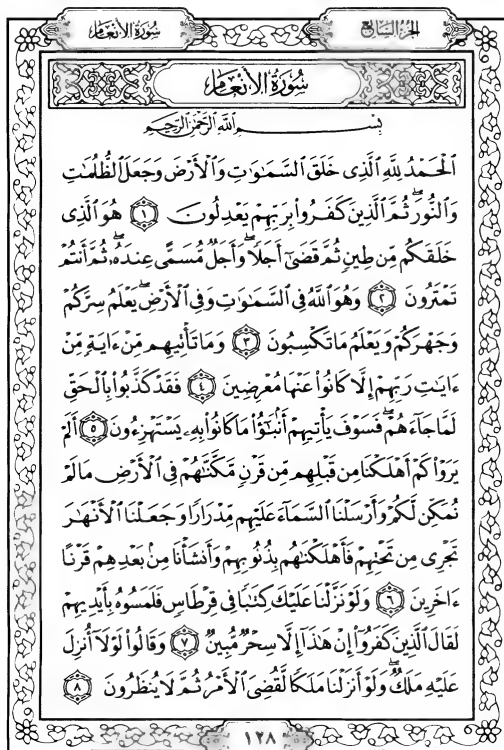 سُورَةُ الأَنْعَام
الجُزْءُ السَّابِعُ
سُورَةُ الأَنْعَام
بِسْمِ اللَّهِ الرَّحْمَٰنِ الرَّحِيمِ
ٱلْحَمْدُ لِلَّهِ ٱلَّذِى خَلَقَ ٱلسَّمَٰوَٰتِ وَٱلْأَرْضَ وَجَعَلَ ٱلظُّلُمَٰتِ
وَٱلنُّورَۖ ثُمَّ ٱلَّذِينَ كَفَرُوا۟ بِرَبِّهِمْ يَعْدِلُونَ ۝١ هُوَ ٱلَّذِى
خَلَقَكُم مِّن طِينٍ ثُمَّ قَضَىٰٓ أَجَلًاۖ وَأَجَلٌ مُّسَمًّى عِندَهُۥۖ ثُمَّ أَنتُمْ
تَمْتَرُونَ ۝٢ وَهُوَ ٱللَّهُ فِى ٱلسَّمَٰوَٰتِ وَفِى ٱلْأَرْضِۖ يَعْلَمُ سِرَّكُمْ
وَجَهْرَكُمْ وَيَعْلَمُ مَا تَكْسِبُونَ ۝٣ وَمَا تَأْتِيهِم مِّنْ ءَايَةٍ مِّنْ
ءَايَٰتِ رَبِّهِمْ إِلَّا كَانُوا۟ عَنْهَا مُعْرِضِينَ ۝٤ فَقَدْ كَذَّبُوا۟ بِٱلْحَقِّ
لَمَّا جَآءَهُمْۖ فَسَوْفَ يَأْتِيهِمْ أَنۢبَٰٓؤُا۟ مَا كَانُوا۟ بِهِۦ يَسْتَهْزِءُونَ ۝٥ أَلَمْ
يَرَوْا۟ كَمْ أَهْلَكْنَا مِن قَبْلِهِم مِّن قَرْنٍ مَّكَّنَّٰهُمْ فِى ٱلْأَرْضِ مَا لَمْ
نُمَكِّن لَّكُمْ وَأَرْسَلْنَا ٱلسَّمَآءَ عَلَيْهِم مِّدْرَارًا وَجَعَلْنَا ٱلْأَنْهَٰرَ
تَجْرِى مِن تَحْتِهِمْ فَأَهْلَكْنَٰهُم بِذُنُوبِهِمْ وَأَنشَأْنَا مِنۢ بَعْدِهِمْ قَرْنًا
ءَاخَرِينَ ۝٦ وَلَوْ نَزَّلْنَا عَلَيْكَ كِتَٰبًا فِى قِرْطَاسٍ فَلَمَسُوهُ بِأَيْدِيهِمْ
لَقَالَ ٱلَّذِينَ كَفَرُوٓا۟ إِنْ هَٰذَآ إِلَّا سِحْرٌ مُّبِينٌ ۝٧ وَقَالُوا۟ لَوْلَآ أُنزِلَ
عَلَيْهِ مَلَكٌۖ وَلَوْ أَنزَلْنَا مَلَكًا لَّقُضِىَ ٱلْأَمْرُ ثُمَّ لَا يُنظَرُونَ ۝٨
١٢٨